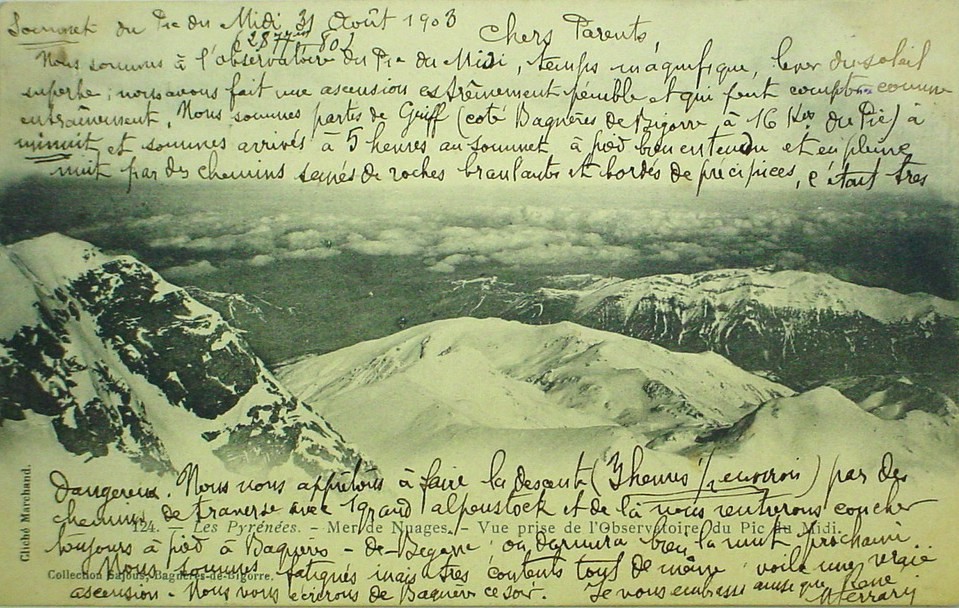 Sommet du Pic du Midi 31 Août 1903
(2877m 80)
Chers Parents,
Nous sommes à l'observatoire du Pic du Midi, temps magnifique, lever du soleil
superbe; nous avons fait une ascension extrêmement pénible et qui peut compter comme
entraînement. Nous sommes partis de Gripp (coté Bagnères de Bigorre à 16 Km du Pic) à
minuit et sommes arrivés à 5 heures au sommet à pied bien entendu et en pleine
nuit par des chemins semés de roches branlantes et bordés de précipices, c'était très
dangereux. Nous nous apprêtons à faire la descente (3 heures 1/2 environ) par des
chemins de traverse avec 1 grand alpenstock et de là nous rentrerons coucher
124. — Les Pyrénées. - Mer de Nuages. - Vue prise de l'Observatoire du Pic du Midi.
toujours à pied à Bagnères-de-Bigorre; on dormira bien la nuit prochaine
Nous sommes fatigués mais très contents tout de même; voilà une vraie
Collection Sajous, Bagnères-de-Bigorre.
ascension. Nous vous écrirons de Bagnères ce soir. Je vous embrasse ainsi que
Cliché Marchand.